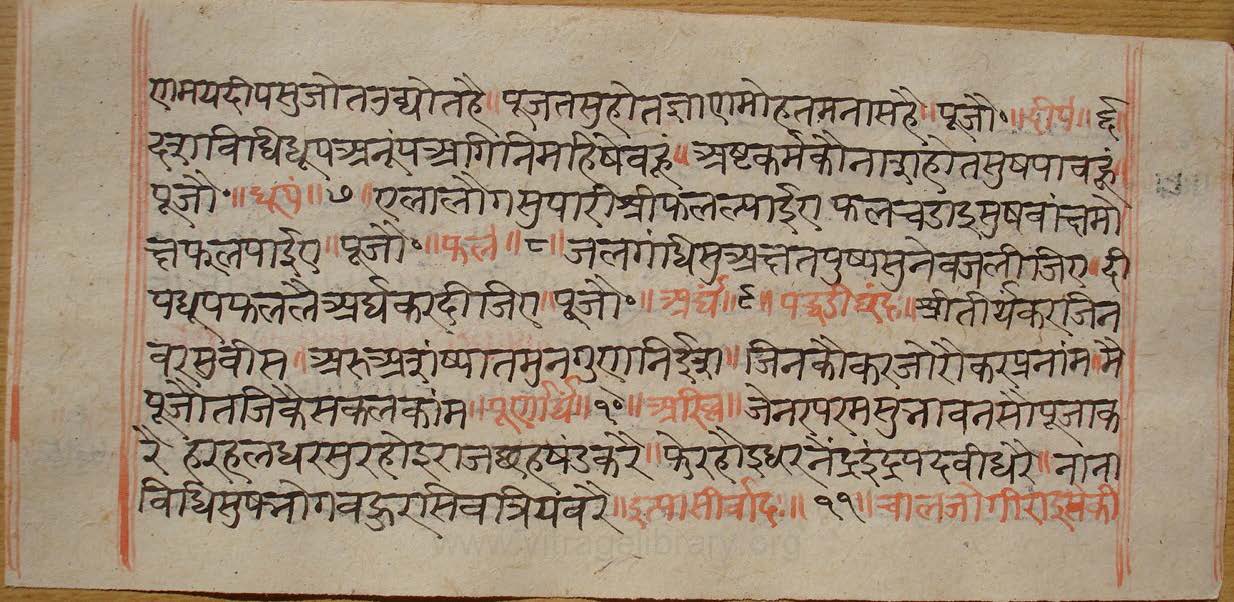 णमयदीपसुजोतउद्योतहै॥ पूजतसुहोतज्ञाणमोहतमनासहै॥ पूजौ॰॥दीपं॥६॥
दशविधिधूपअनूंपअगिनिमहिषेवहूं॥ अष्टकर्मकौनाशहोतसुषपावहूं॥
पूजौ॰॥धूपं॥७॥एलालौगसुपारीश्रीफलल्याईए फलचडाइसुषवांछमो
क्षफलपाईए॥पूजौ॰॥फलं॥८॥जलगंधिसुअक्षतपुष्पसुनेवजलीजिए॥दी
पधूपफललैअर्घकरदीजिए॥पूजौ॰॥अर्घं॥९॥पद्धडीछंद॥श्रीतीर्थंकरजिन
वरसुवीस॥अरुअशंष्यातमुनगुणनिईश॥जिनकौकरजोरौकरप्रनांम॥मै
पूजौतजिकैसकलकांम॥पूर्णार्घं॥१०॥अरिल्ल॥जेनरपरमसुभावनसौपूजाक
रै हरहलधरसुरहोइराजछहषंडकरै॥फेरहोइधरनेंद्रइंद्रपदवीधरै॥नांनां
विधिसुषभोगवहुरसिवत्रियंवरै॥इत्यासीर्वादः॥११॥चालजोगीराइसकी
www.vitragelibrary.org